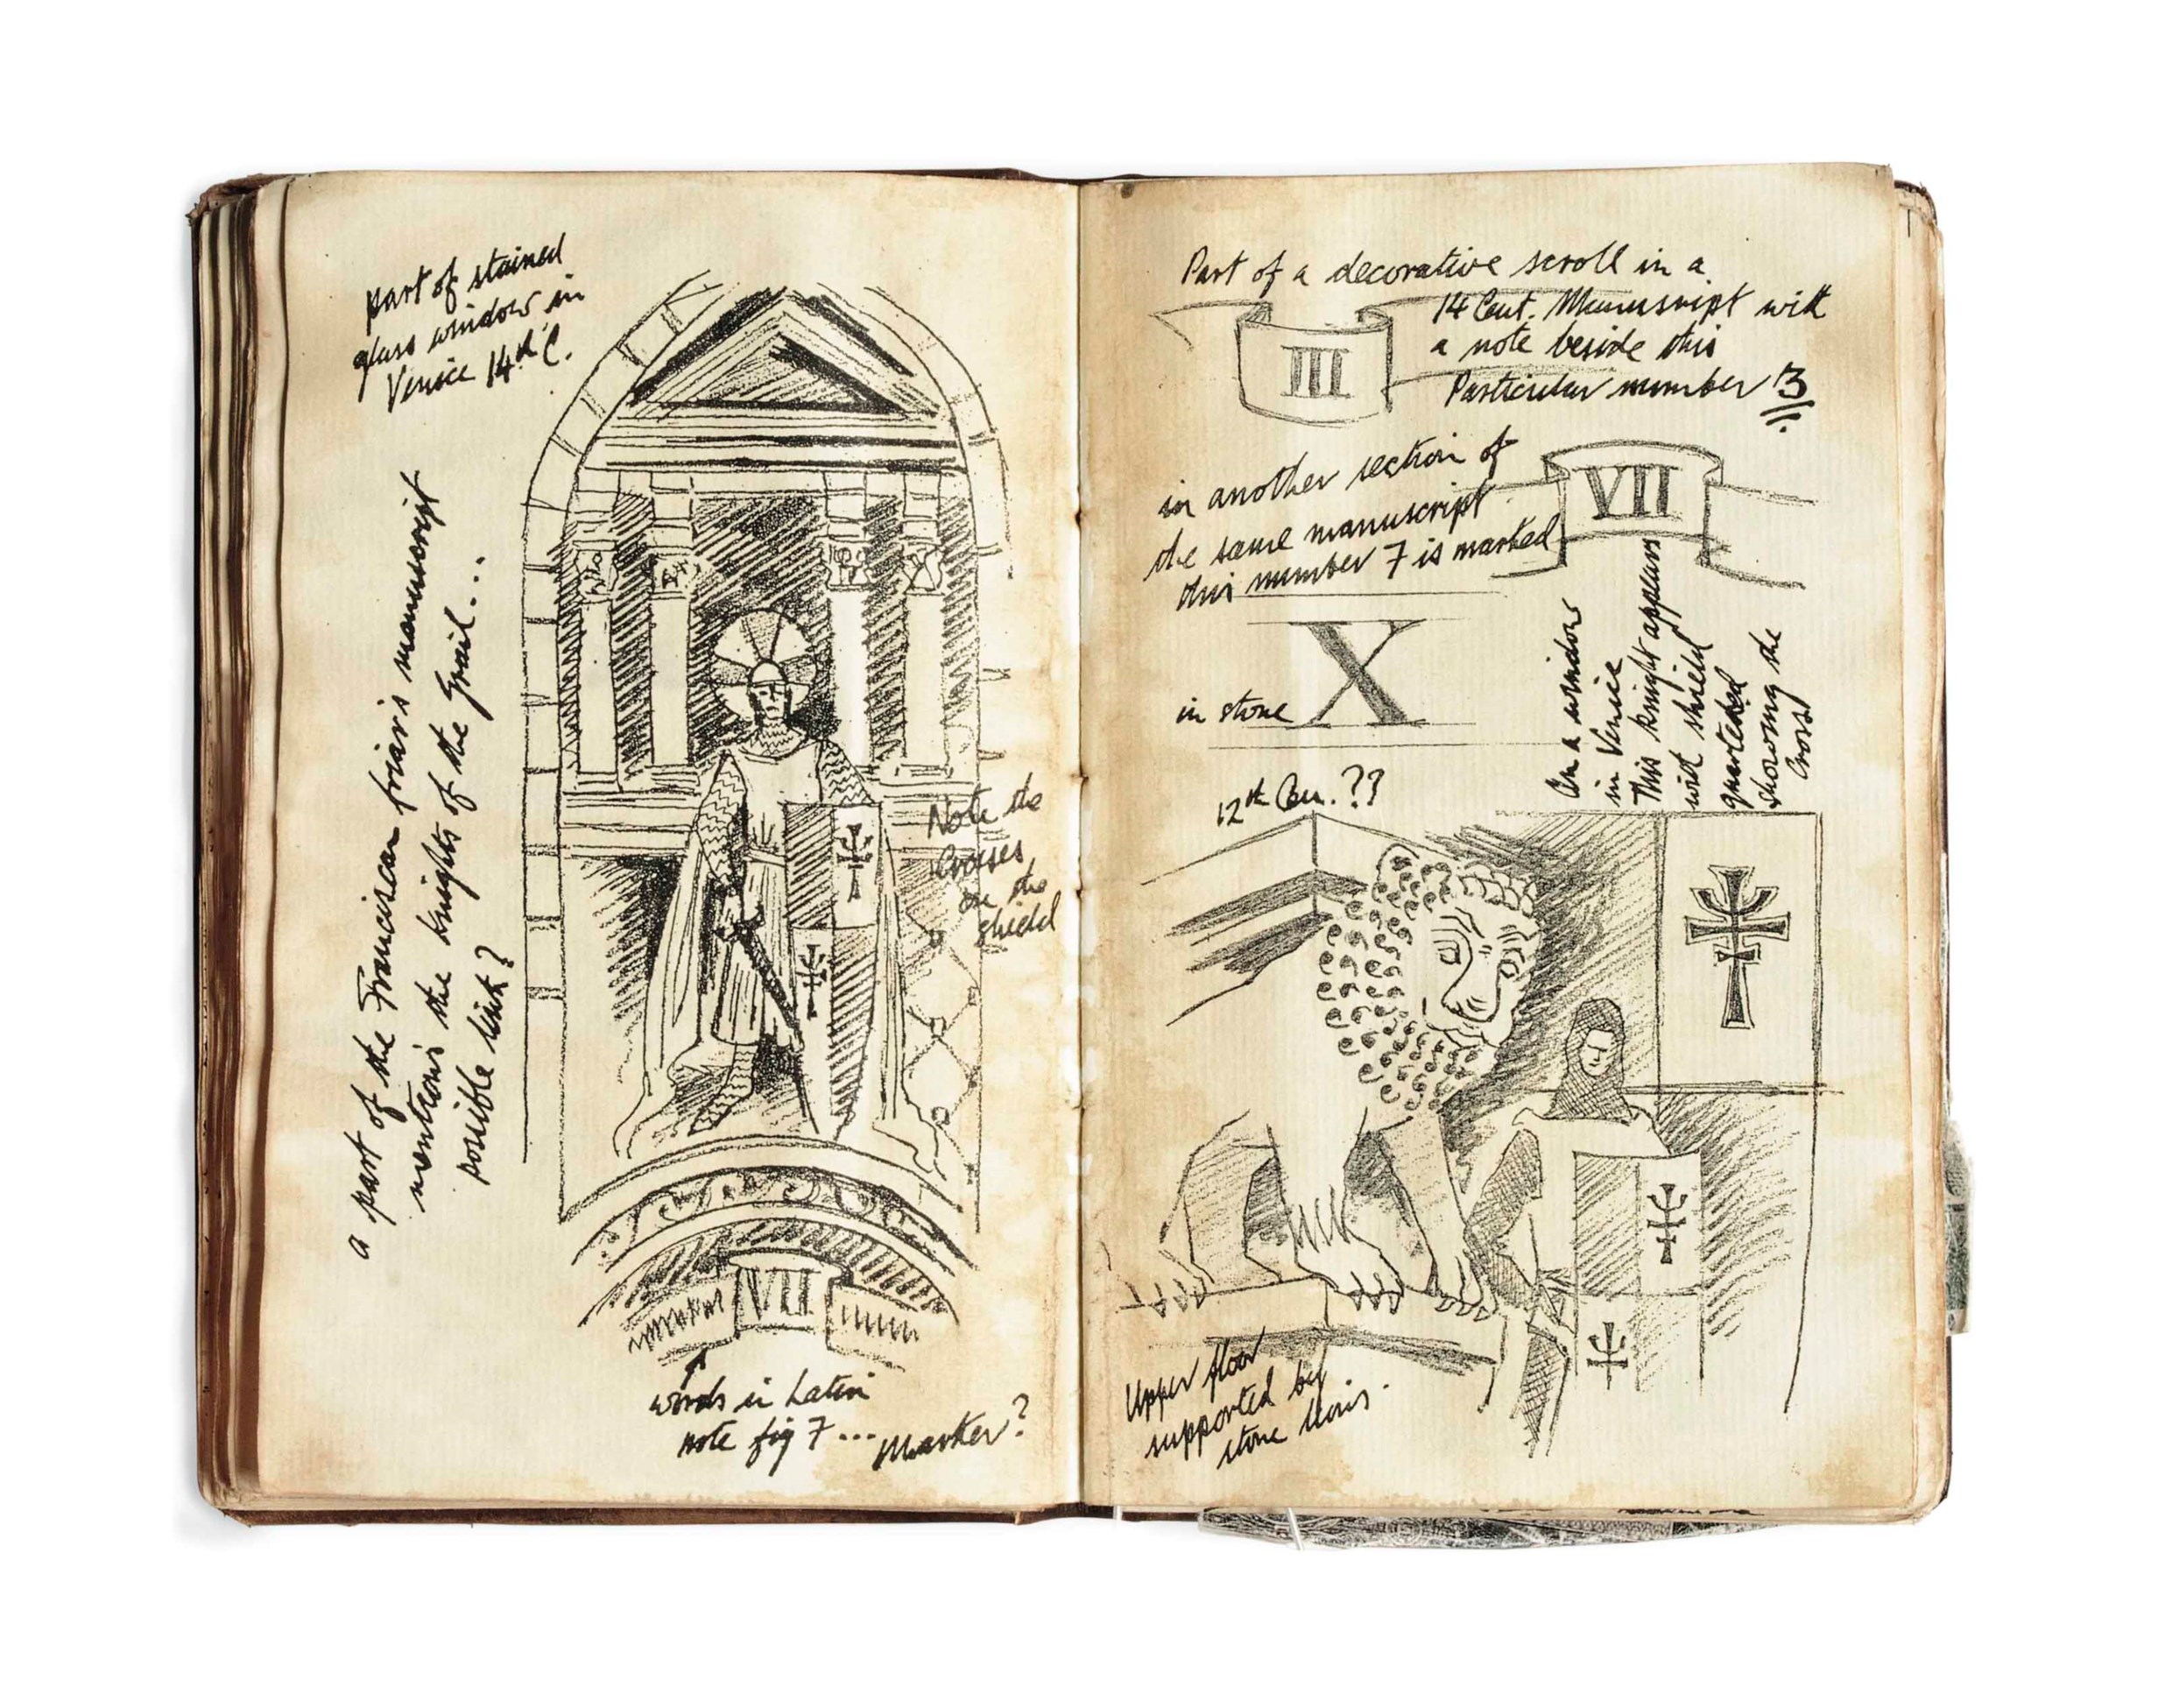 part of stained
glass window in
Venice 14th C.
a part of the Franciscan friar's manuscript
mentions the knights of the Grail...
possible link?
Note the
Crosses
on the
shield
VII
words in Latin
note fig 7... Marker?
Part of a decorative scroll in a
14 Cent. Manuscript with
a note beside this
Particular number 3
III
in another section of
the same manuscript
this number 7 is marked
VII
in stone X
On a window
in Venice
This knight appears
with shield
quartered
showing the
Cross
12th Cen.??
Upper floor
supported by
stone lions.